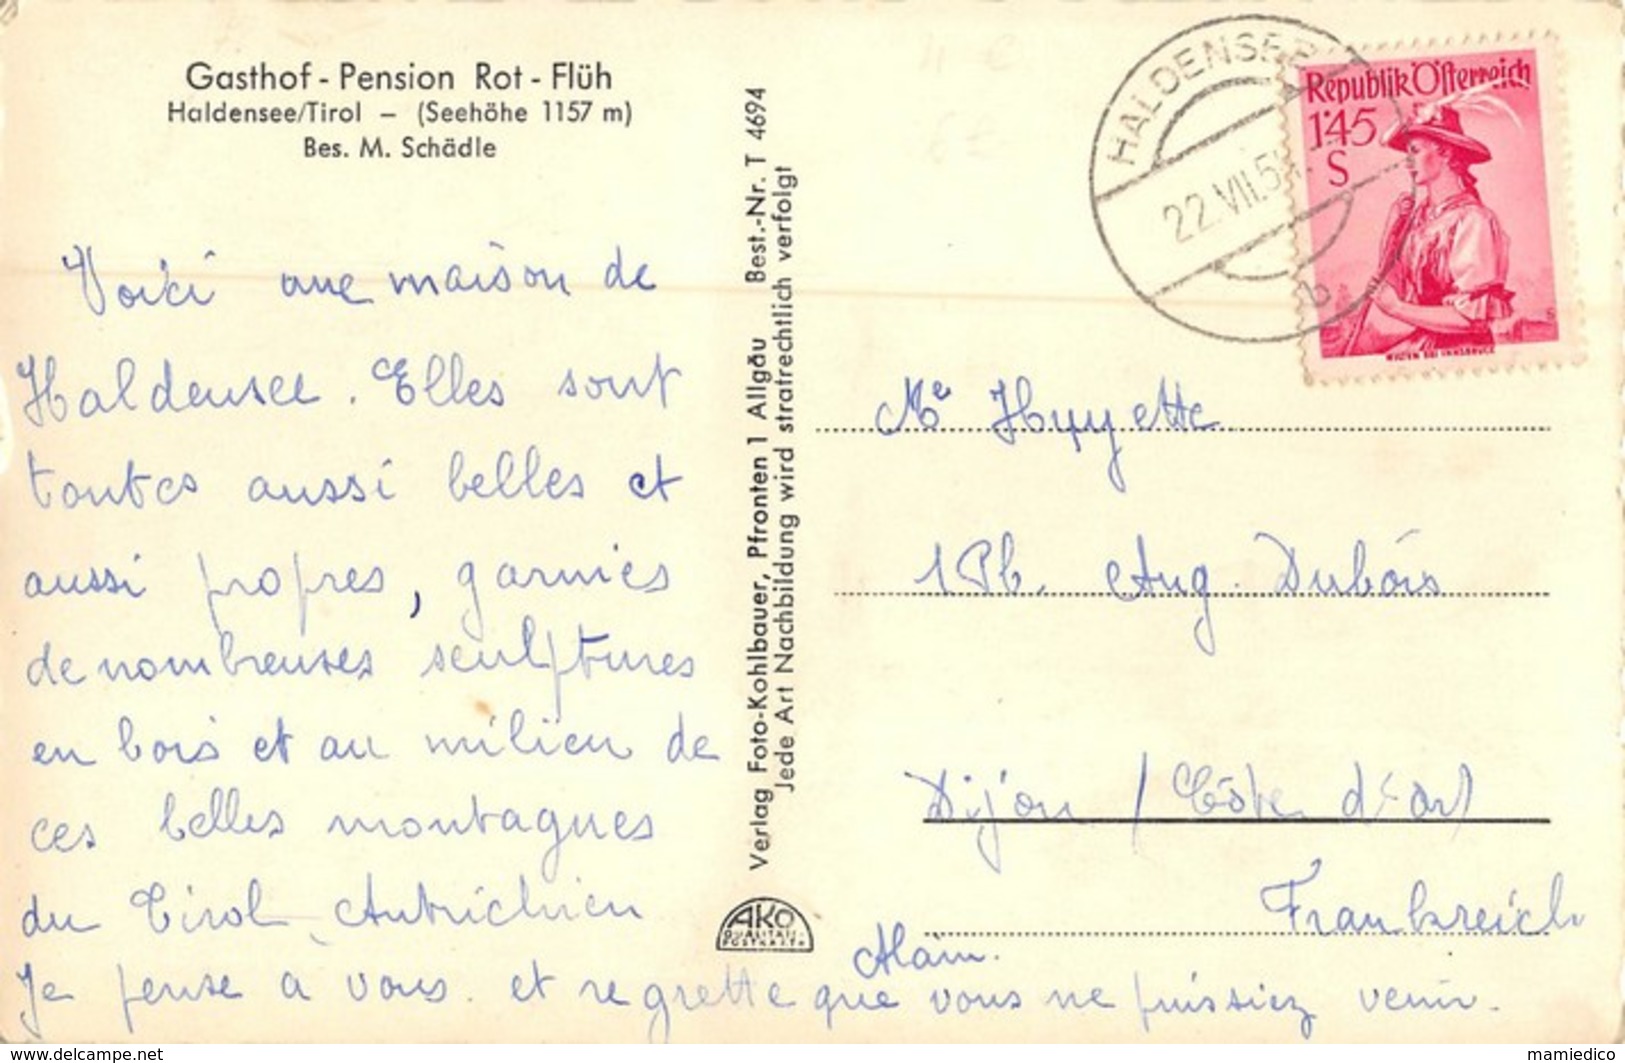 Gasthof - Pension Rot - Flüh
Haldensee/Tirol – (Seehöhe 1157 m)
Bes. M. Schädle
Voici une maison de
Haldensee. Elles sont
toutes aussi belles et
aussi propres, garnies
de nombreuses sculptures
en bois et au milieu de
ces belles montagnes
du Tirol Autrichien
Je pense a vous. et regrette que vous ne puissiez venir.
Alain.
Verlag Foto-Kohlbauer, Pfronten 1 Allgäu Best.-Nr. T 4694
Jede Art Nachbildung wird strafrechtlich verfolgt
AKO
QUALITÄTS-
POSTKARTE
HALDENSEE
22.VII.5
b
Republik Österreich
1·45
S
WILTEN BEI INNSBRUCK
Me Huyette
1 Pl. Aug. Dubois
Dijon / Côte d'or)
Frankreich
https://www.delcampe.net
mamiedico